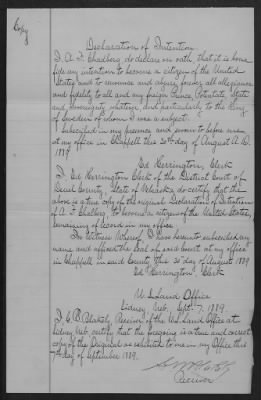 Copy
Declaration of Intention
I. A. F. Chalberg do declare on oath, that it is bona
fide my intention to become a citizen of the United
States and to renounce and abjure forever all allegiance
and fidelity to all and any foreign Prince, Potentate, State
and Sovereignty whatever, and particularly to the King
of Sweden of whom I was a subject.
Subscribed in my presence and sworn to before me
at my office in Chappell this 20th day of August A.D.
1889
Ed Herrington, Clerk
I, Ed Herrington Clerk of the District Court of
Deuel County, State of Nebraska, do certify that the
above is a true copy of the original Declaration of Intention
of A. F. Chalberg, to become a citizen of the United States,
remaining of record in my office.
In Witness Whereof, I have hereunto subscribed my
name and affixed the seal of said court at my office
in Chappell in said County this 20th day of August 1889
Ed Herrington, Clerk
U.S. Land Office
Sidney Neb. Sept. 7. 1889
I. C. B. Blakely, Receiver of the U.S. Land Office at
Sidney Neb. certify that the foregoing is a true and correct
copy of the Original as exhibited to me in my Office this
7th day of September 1889.
Receiver